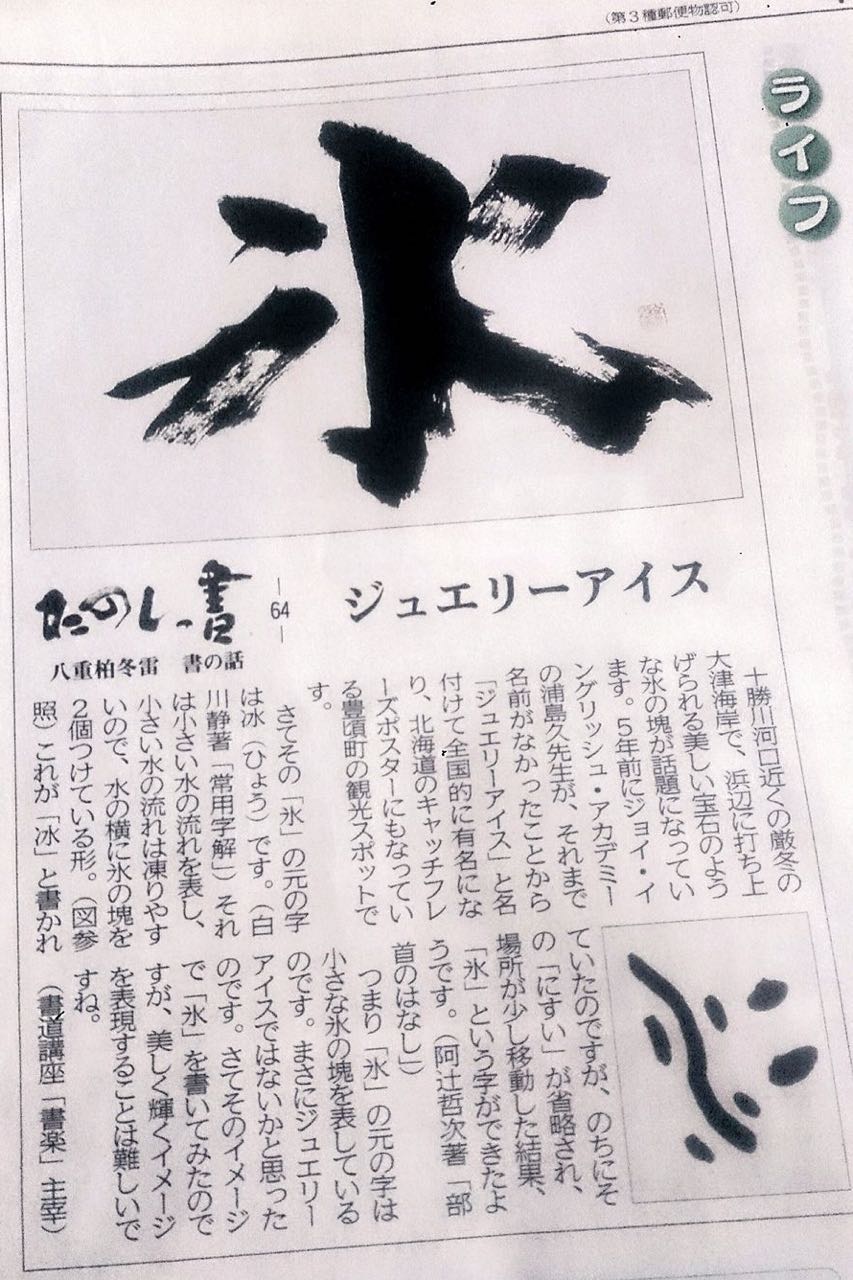 (第3種郵便物認可)
ライフ
氷
ジュエリーアイス
たのしい書
—64—
八重柏冬雷 書の話
十勝川河口近くの厳冬の
大津海岸で、浜辺に打ち上
げられる美しい宝石のよう
な氷の塊が話題になってい
ます。5年前にジョイ・イ
ングリッシュ・アカデミー
の浦島久先生が、それまで
名前がなかったことから
「ジュエリーアイス」と名
付けて全国的に有名にな
り、北海道のキャッチフレ
ーズポスターにもなってい
る豊頃町の観光スポットで
す。
さてその「氷」の元の字
は冰(ひょう)です。(白
川静著「常用字解」)それ
は小さい水の流れを表し、
小さい水の流れは凍りやす
いので、水の横に氷の塊を
2個つけている形。(図参
照)これが「冰」と書かれ
ていたのですが、のちにそ
の「にすい」が省略され、
場所が少し移動した結果、
「氷」という字ができたよ
うです。(阿辻哲次著「部
首のはなし」)
つまり「氷」の元の字は
小さな氷の塊を表している
のです。まさにジュエリー
アイスではないかと思った
のです。さてそのイメージ
で「氷」を書いてみたので
すが、美しく輝くイメージ
を表現することは難しいで
すね。
(書道講座「書楽」主宰)